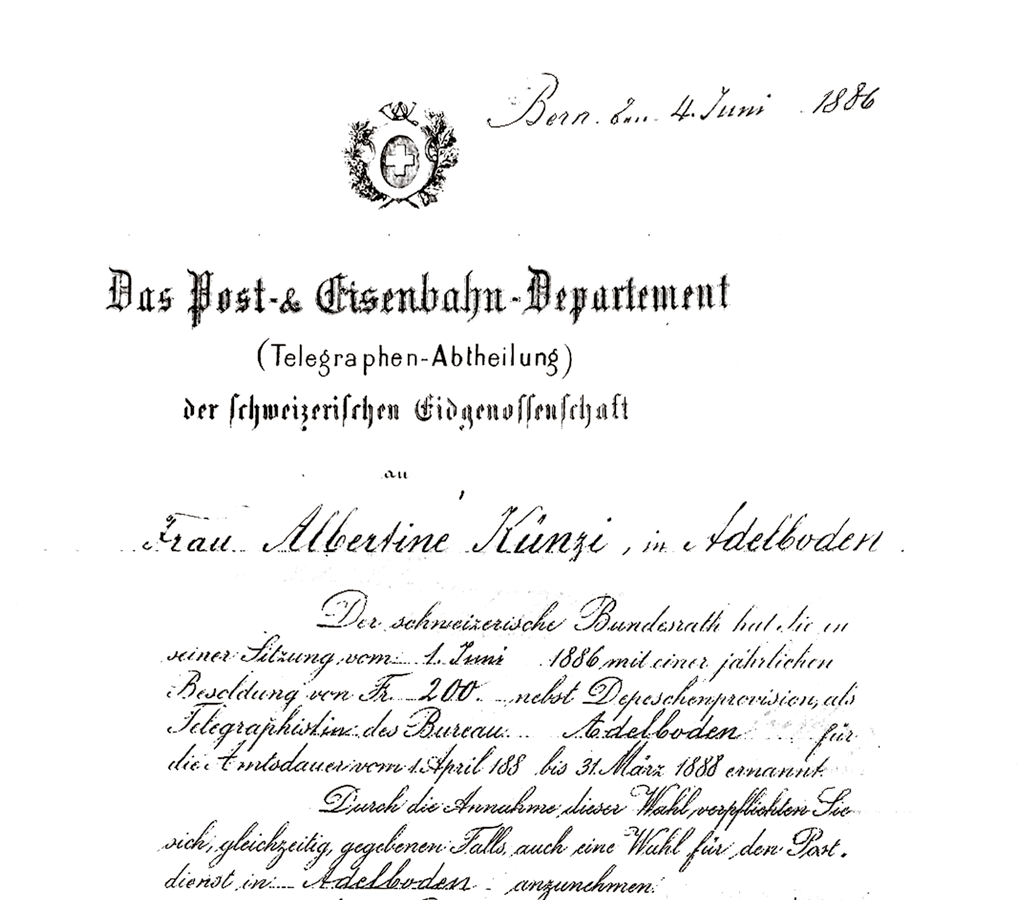 Bern, den 4. Juni 1886
Das Post- & Eisenbahn-Departement
(Telegraphen-Abtheilung)
der schweizerischen Eidgenossenschaft
an
Frau Albertine Künzi, in Adelboden.
Der schweizerische Bundesrath hat Sie in
seiner Sitzung vom 1. Juni 1886 mit einer jährlichen
Besoldung von Fr. 200. nebst Depeschenprovision, als
Telegraphistin des Bureau Adelboden für
die Amtsdauer vom 1. April 188 bis 31. März 1888 ernannt.
Durch die Annahme dieser Wahl verpflichten Sie
sich, gleichzeitig, gegebenen Falls, auch eine Wahl für den Post-
dienst in Adelboden anzunehmen.